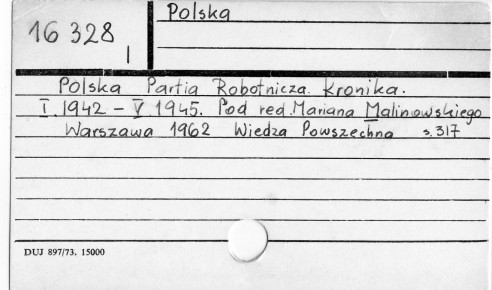 Polska
16 328
I
Polska Partia Robotnicza. Kronika.
I. 1942 - V 1945. Pod red. Mariana Malinowskiego
Warszawa 1962 Wiedza Powszechna s. 317
DUJ 897/73. 15000